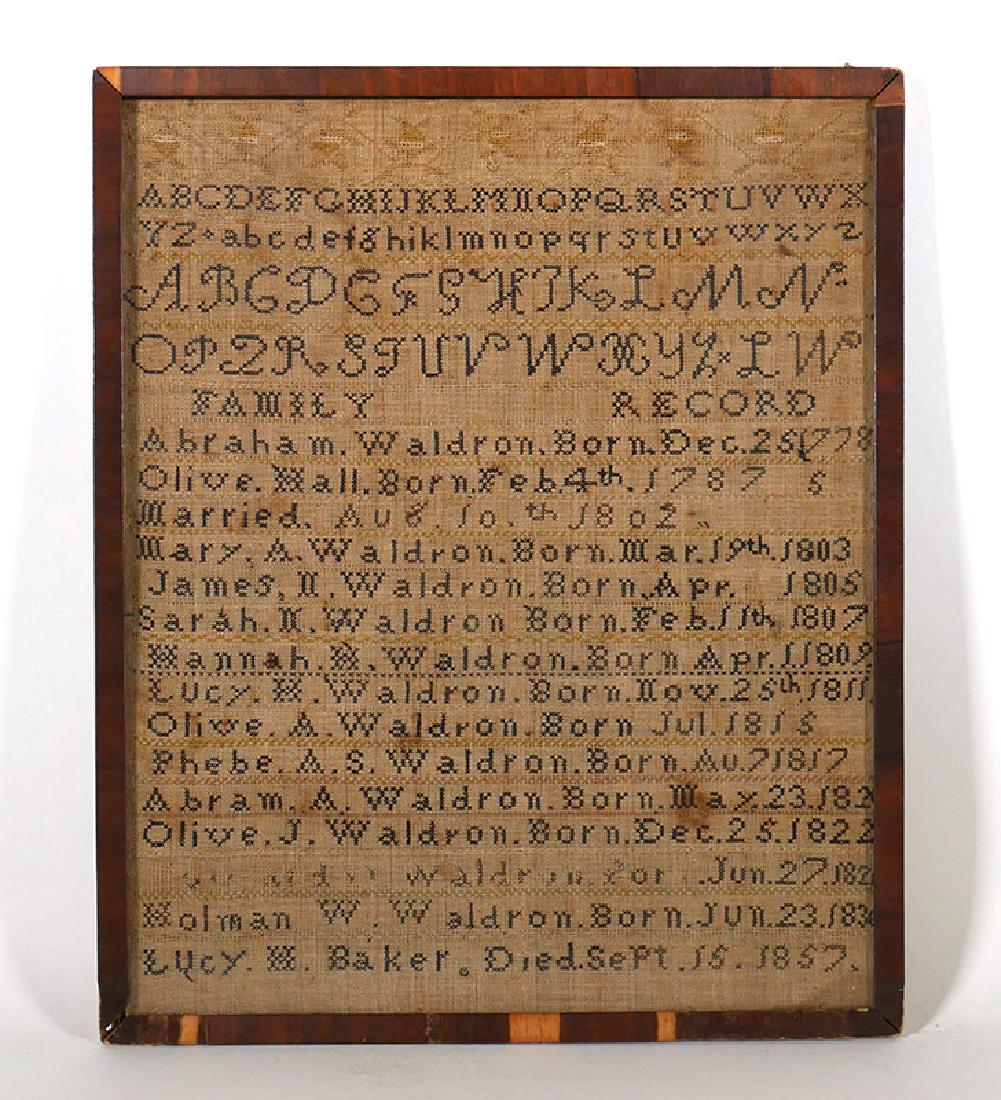 ABCDEFGHIJKLMNOPQRSTUVWX
YZ abcdefghiklmnopqrstuvwxyz
ABCDEFGHIKLMN
OPQRSTUVWXYZ LW
FAMILY RECORD
Abraham. Waldron. Born. Dec. 25 1778
Olive. Hall. Born. Feb. 4th. 1787 5
Married. Aug. 10.th 1802.
Mary. A. Waldron. Born. Mar. 19th. 1803
James. N. Waldron. Born. Apr. 1805
Sarah. N. Waldron Born. Feb. 11th. 1807
Hannah. B. Waldron. Born Apr. 1 1809
Lucy. H. Waldron. Born. Nov. 25th 1811.
Olive. A. Waldron. Born Jul. 1815
Phebe. A. S. Waldron. Born. Au. 7 1817
Abram. A. Waldron. Born. May. 23. 182
Olive. J. Waldron. Born. Dec. 25. 1822
Waldron. Jun. 27. 182
Holman W. Waldron. Born. Jun. 23. 183
Lucy. H. Baker. Died. Sept. 15. 1857.